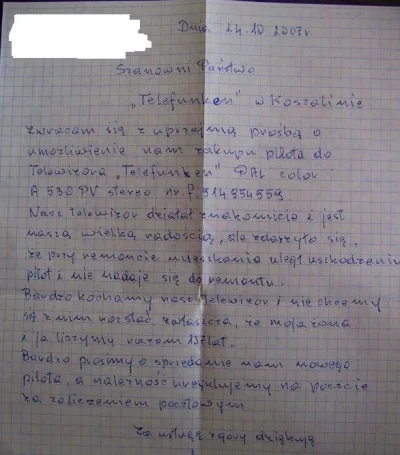 Dnia. 24.10 2007r.
Szanowni Państwo
„Telefunken" w Koszalinie
zwracam się z uprzejmą prośbą o
umożliwienie nam zakupu pilota do
telewizora „Telefunken" PAL color
A 530 PV stereo nr. f. 914954559
Nasz telewizor działał znakomicie i jest
naszą wielką radością, ale zdarzyło się,
że przy remoncie mieszkania uległ uszkodzeniu
pilot i nie nadaje się do remontu.
Bardzo kochamy nasz telewizor i nie chcemy
się z nim rozstać, zwłaszcza, że moja żona
i ja liczymy razem 157 lat.
Bardzo prosimy o sprzedanie nam nowego
pilota, a należność uregulujemy na poczcie
za zaliczeniem pocztowym
Za usługę z góry dziękuję